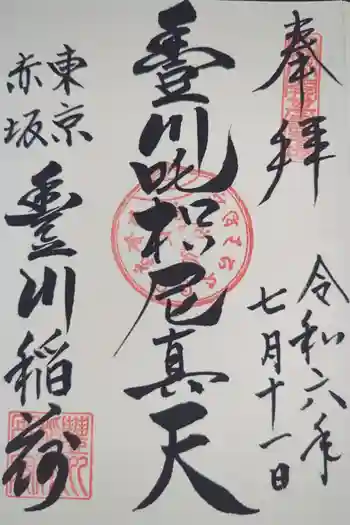 奉拝
令和六年
七月十一日
豊川吒枳尼真天
東京
赤坂
豊川稲荷